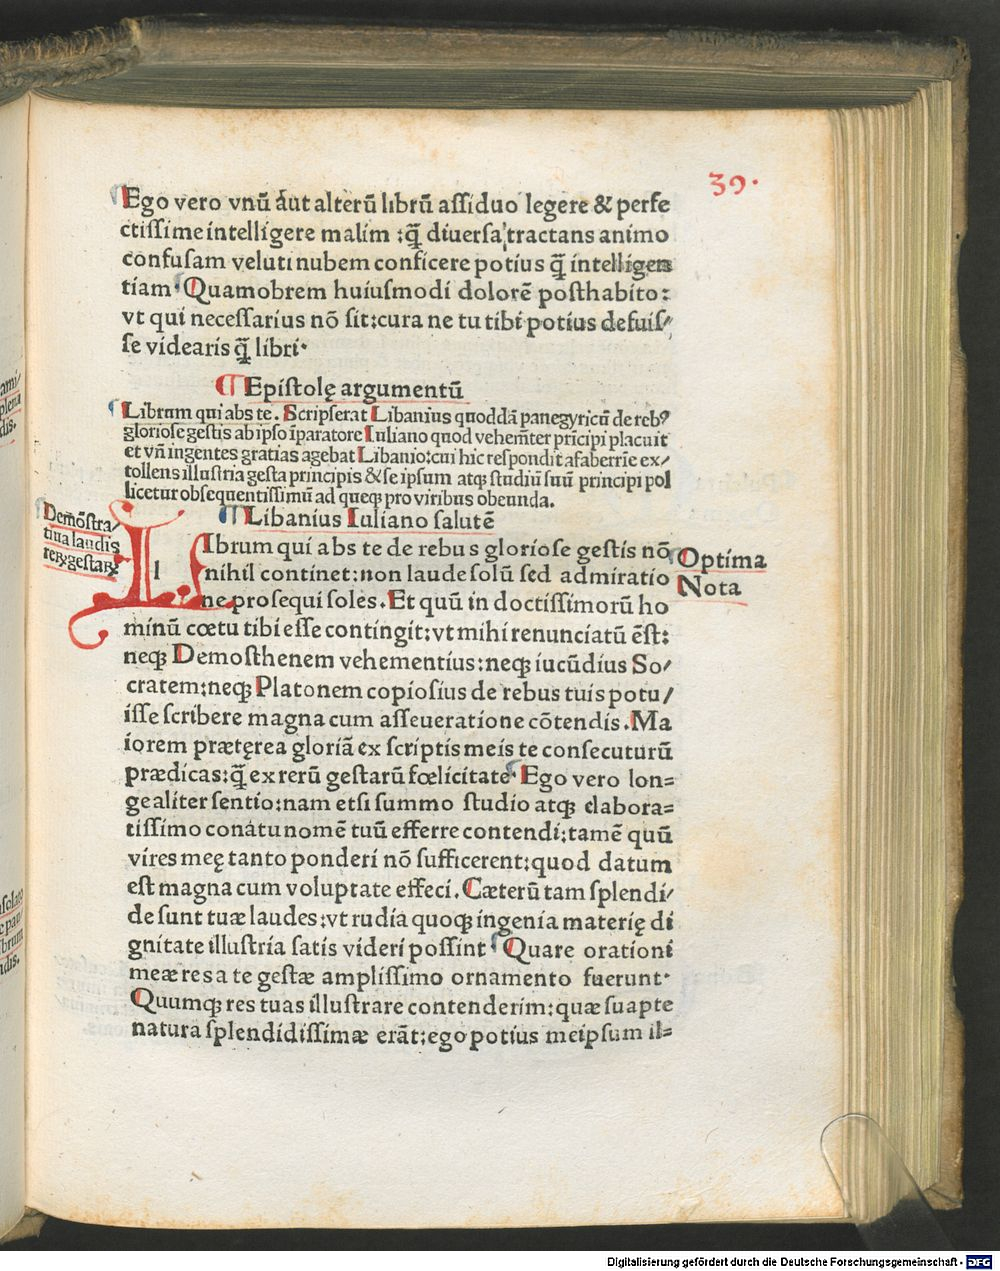 39.
Ego vero vnū aut alterū librū assiduo legere & perfe
ctissime intelligere malim :q̄ diuersa tractans animo
confusam veluti nubem conficere potius q̄ intelligen
tiam· Quamobrem huiusmodi dolorē posthabito:
vt qui necessarius nō sit:cura ne tu tibi potius defuis/
se videaris q̄ libri·
¶ Epistolę argumentū
Librum qui abs te. Scripserat Libanius quoddā panegyricū de rebꝰ
gloriose gestis ab ipso īparatore Iuliano quod vehemēter pricipi placuit
et vn̄ ingentes gratias agebat Libanio:cui hic respondit afaberrīe ex/
tollens illustria gesta principis & se ipsum atqꝫ studiū suū principi pol
licetur obsequentissimū ad queqꝫ pro viribus obeunda.
¶ Libanius Iuliano salutē
Demōstra/
tiua laudis
reꝝ gestaꝝ
LIbrum qui abs te de rebus gloriose gestis nō
nihil continet:non laude solū sed admiratio
ne prosequi soles. Et quū in doctissimorū ho
minū cœtu tibi esse contingit:vt mihi renunciatū ēst:
neqꝫ Demosthenem vehementius:neqꝫ iucūdius So/
cratem:neqꝫ Platonem copiosius de rebus tuis potu/
isse scribere magna cum asseueratione cōtendis. Ma
iorem prætęrea gloriā ex scriptis meis te consecuturū
prædicas:q̄ ex rerū gestarū fœlicitate· Ego vero lon=
ge aliter sentio:nam etsi summo studio atqꝫ elabora=
tissimo conatu nomē tuū efferre contendi:tamē quū
vires meę tanto ponderi nō sufficerent:quod datum
est magna cum voluptate effeci. Cæterū tam splendi/
de sunt tuæ laudes:vt rudia quoqꝫ ingenia materię di
gnitate illustria satis videri possint· Quare orationi
meæ res a te gestæ amplissimo ornamento fuerunt·
Quumqꝫ res tuas illustrare contenderim:quæ suapte
natura splendidissimæ erāt:ego potius meipsum il=
Optima
Nota
Digitalisierung gefördert durch die Deutsche Forschungsgemeinschaft - DFG